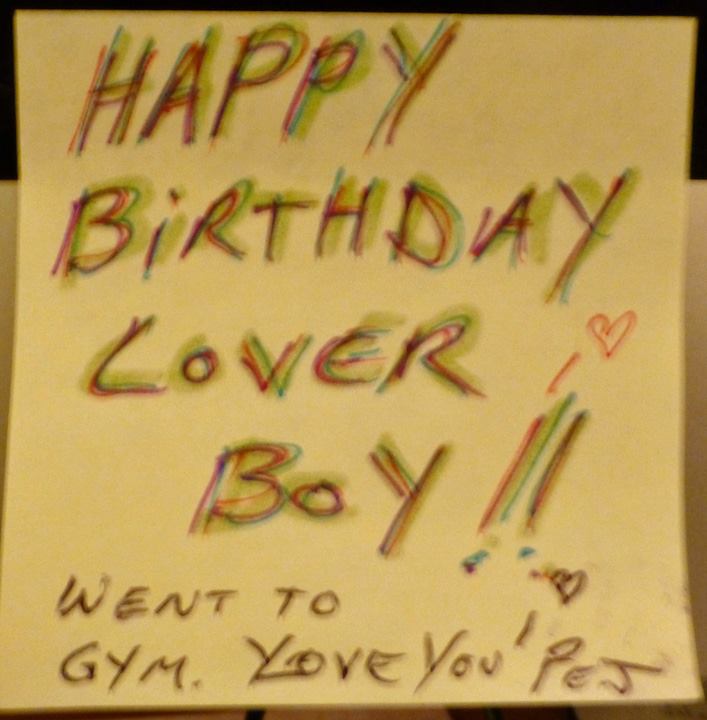 HAPPY
BiRTHDAY
LOVER
BOY!!
WENT TO
GYM. LOVE YOU!